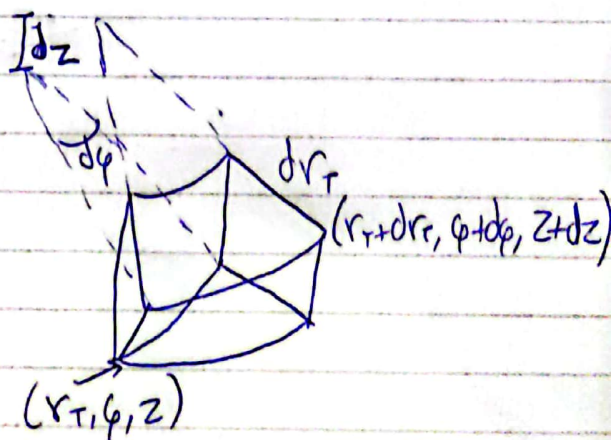 dz
dφ
dr_T
(r_T+dr_T, φ+dφ, z+dz)
(r_T, φ, z)